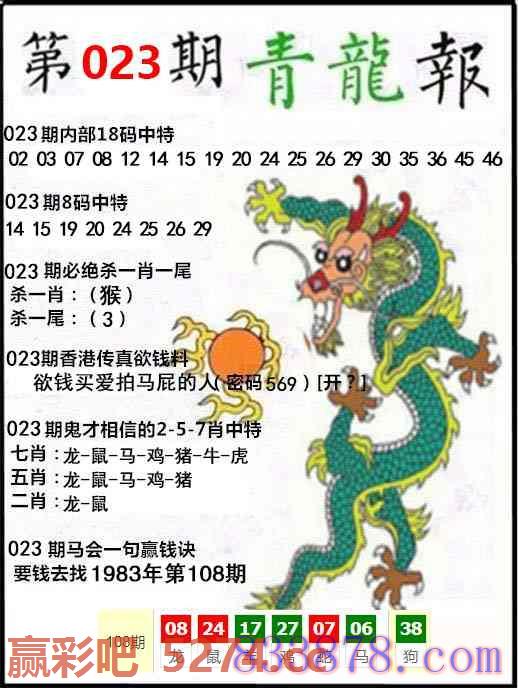 第023期青龍報
023期内部18码中特
02 03 07 08 12 14 15 19 20 24 25 26 29 30 35 36 45 46
023期8码中特
14 15 19 20 24 25 26 29
023 期必绝杀一肖一尾
杀一肖：（猴）
杀一尾：（3）
023期香港传真欲钱料
欲钱买爱拍马屁的人(密码569)[开？]
023期鬼才相信的2-5-7肖中特
七肖：龙-鼠-马-鸡-猪-牛-虎
五肖：龙-鼠-马-鸡-猪
二肖：龙-鼠
023 期马会一句赢钱诀
要钱去找1983年第108期
108期 08 24 17 27 07 06 38
龙 鼠 羊 鸡 蛇 马 狗
赢彩吧
838878.com